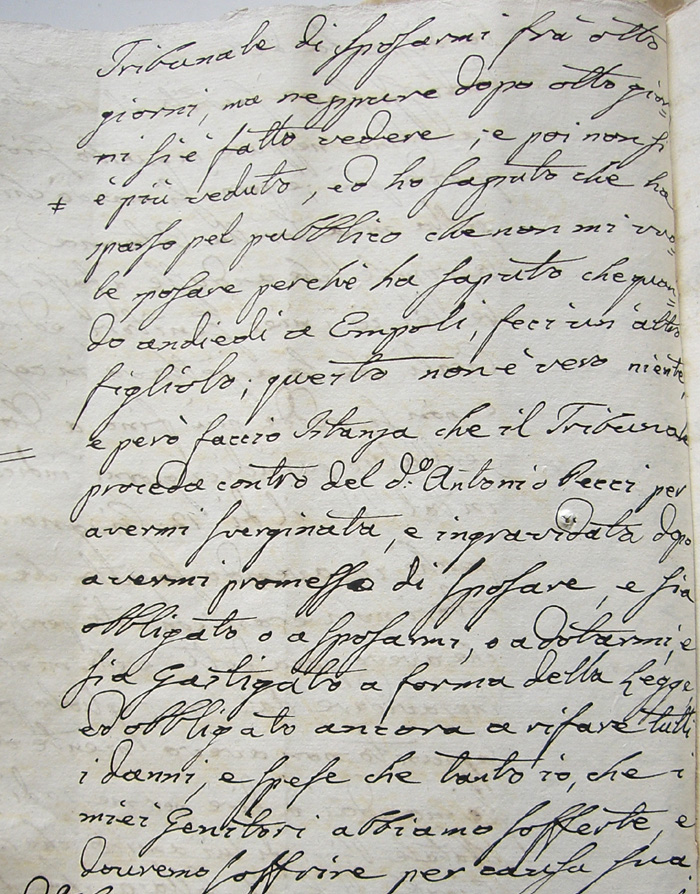 Tribunale di sposarmi frà otto
giorni, ma neppure dopo otto gior=
ni si è fatto vedere, e poi non si
è più veduto, ed ho saputo che ha
sparso pel pubblico che non mi vuo=
le sposare perchè ha saputo che quan=
do andiedi a Empoli, feci un altro
figliolo; questo non è vero niente,
e però faccio Istanza che il Tribunale
proceda contro del d.º Antonio Pecci per
avermi sverginata, e ingravidata dopo
avermi promesso di sposare, e sia
obbligato o a sposarmi, o a dotarmi, e
sia Gastigato a forma della Legge,
ed obbligato ancora a rifare tutti
i danni, e spese che tanto io, che i
miei Genitori abbiamo sofferte, e
dovremo soffrire per causa sua